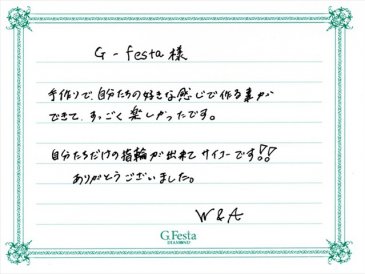 G-festa 様
手作りで、自分たちの好きな感じで作る事が
できて、すっごく楽しかったです。
自分たちだけの指輪が出来てサイコーです!!
ありがとうございました。
W & A
G.Festa
DIAMOND